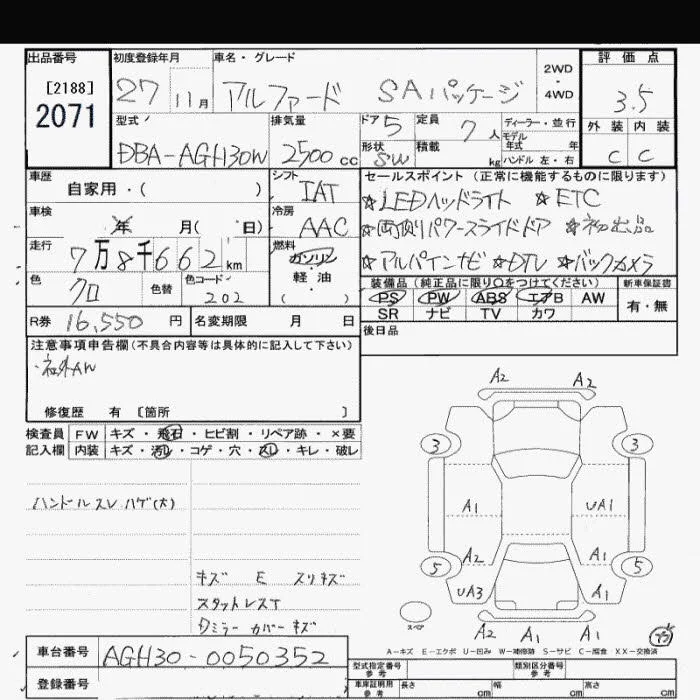 出品番号 初度登録年月 車名・グレード 2WD・4WD 評価点
[2188] 2071
27 11月 アルファード SAパッケージ 3.5
型式 排気量 ドア 5 定員 7人 ディーラー・並行 外装 内装
モデル年式 年
DBA-AGH30W 2500cc 形状 SW 積載 kg ハンドル 左・右 C C
車歴 自家用・( ) シフト IAT セールスポイント (正常に機能するものに限ります)
☆LEDヘッドライト ☆ETC
車検 年 月( 日) 冷房 AAC
☆両側パワースライドドア ☆初出品
走行 7万8千662km 燃料 ガソリン 軽・油 ( )
☆アルパインナビ ☆DTV ☆バックカメラ
色 クロ 色替 色コード 202
装備品 (純正品に限り○をつけてください) 新車保証書
PS PW ABS エアB AW 有・無
SR ナビ TV カワ
R券 16,550円 名変期限 月 日 後日品
注意事項申告欄 (不具合内容等は具体的に記入して下さい)
・社外AW
修復歴 有 [箇所 ]
検査員 FW キズ・飛石・ヒビ割・リペア跡・×要
記入欄 内装 キズ・汚レ・コゲ・穴・スレ・キレ・破レ
ハンドルスレ ハゲ(大)
キズ E スリキズ
スタットレスT
Dミラー カバー キズ
A2 A2
3 3
A1 UA1
A2 A1
5 5
UA3 A1
スペア
A2 A1 A1
A-キズ E-エクボ U-凹み W-補修跡 S-サビ C-腐食 XX-交換済
車台番号 AGH30-0050352
型式指定番号 参考 類別区分番号 参考
登録番号
車庫証明用 参考 長さ cm 幅 cm 高さ cm